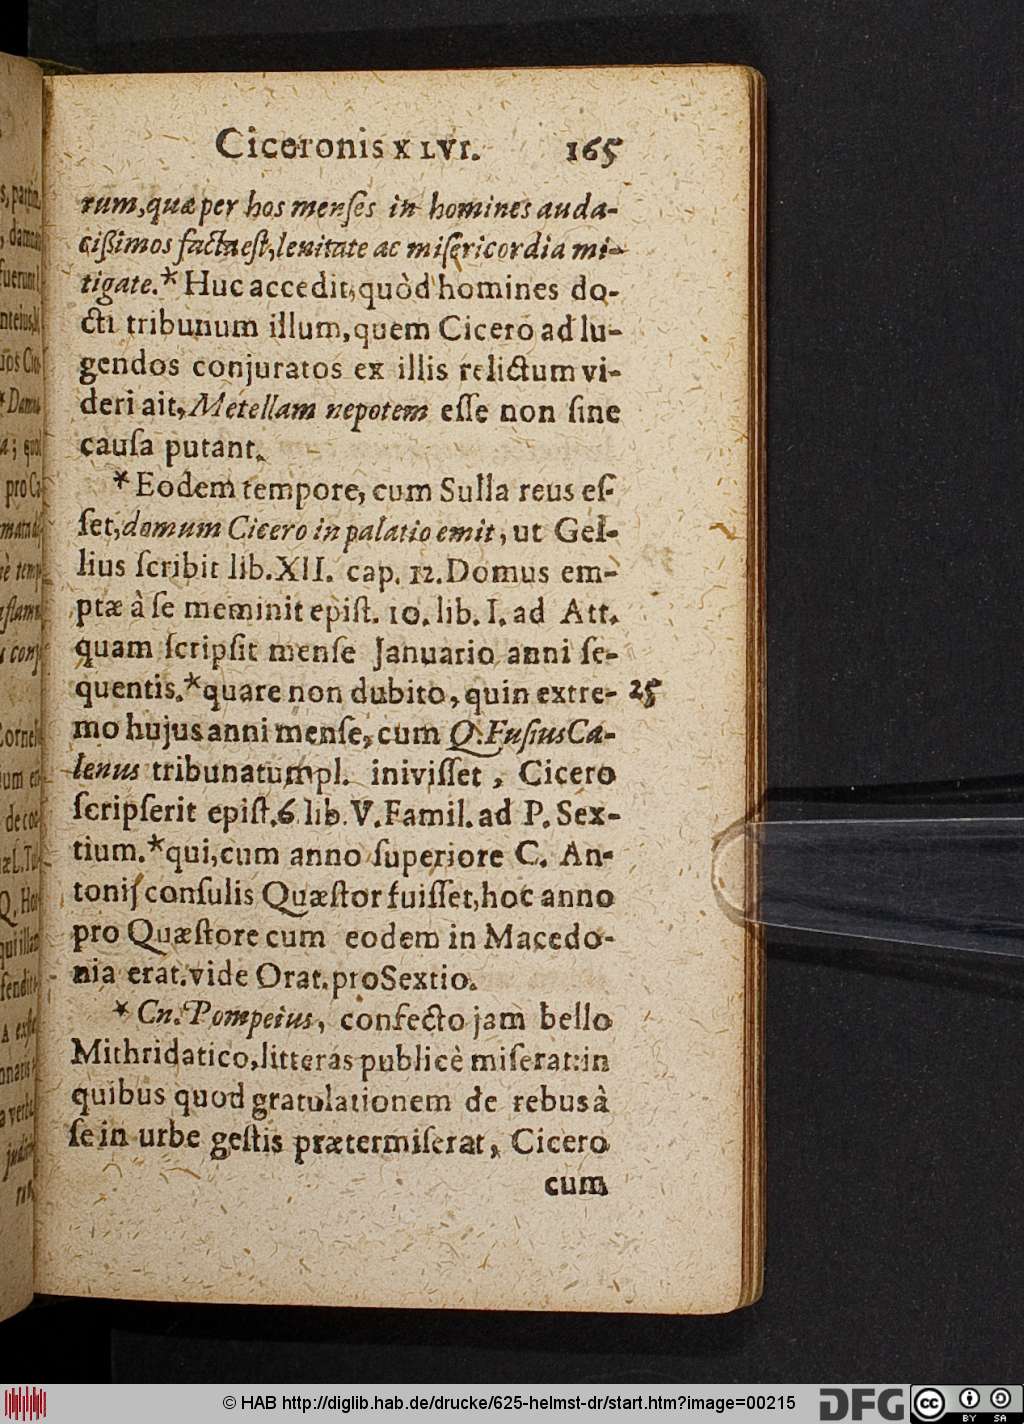 Ciceronis XLVI. 165
rum, quæ per hos menſes in homines auda-
cißimos facta eſt, lenitate ac miſericordia mi-
tigate.* Huc accedit, quòd homines do-
cti tribunum illum, quem Cicero ad lu-
gendos conjuratos ex illis relictum vi-
deri ait, Metellam nepotem eſſe non ſine
cauſa putant.
* Eodem tempore, cum Sulla reus eſ-
ſet, domum Cicero in palatio emit, ut Gel-
lius ſcribit lib. XII. cap. 12. Domus em-
ptæ à ſe meminit epiſt. 10. lib. I. ad Att.
quam ſcripſit menſe Januario anni ſe-
quentis.* quare non dubito, quin extre- 25
mo hujus anni menſe, cum Q. Fuſius Ca-
lenus tribunatum pl. iniviſſet, Cicero
ſcripſerit epiſt. 6 lib. V. Famil. ad P. Sex-
tium.* qui, cum anno ſuperiore C. An-
tonij conſulis Quæſtor fuiſſet, hoc anno
pro Quæſtore cum eodem in Macedo-
nia erat. vide Orat. pro Sextio.
* Cn. Pompeius, confecto jam bello
Mithridatico, litteras publicè miſerat: in
quibus quod gratulationem de rebus à
ſe in urbe geſtis prætermiſerat, Cicero
cum
© HAB http://diglib.hab.de/drucke/625-helmst-dr/start.htm?image=00215
DFG
cc
BY SA